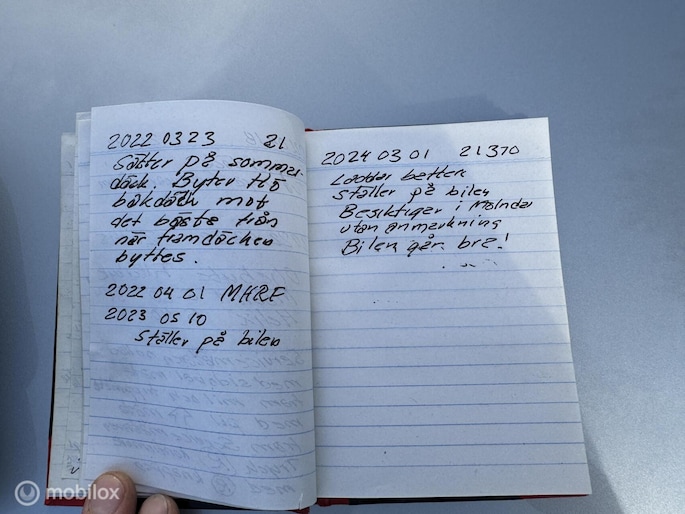 2022 03 23 21
Sätter på sommar-
däck. Byter
bakdäck mot
det bästa från
när framdäcken
byttes.
2022 04 01 MHRF
2023 05 10
Ställer på bilen
2024 03 01 21370
Laddar batteri
Ställer på bilen
Besiktigar i Mölndal
utan anmärkning
Bilen går bra!
mobilox